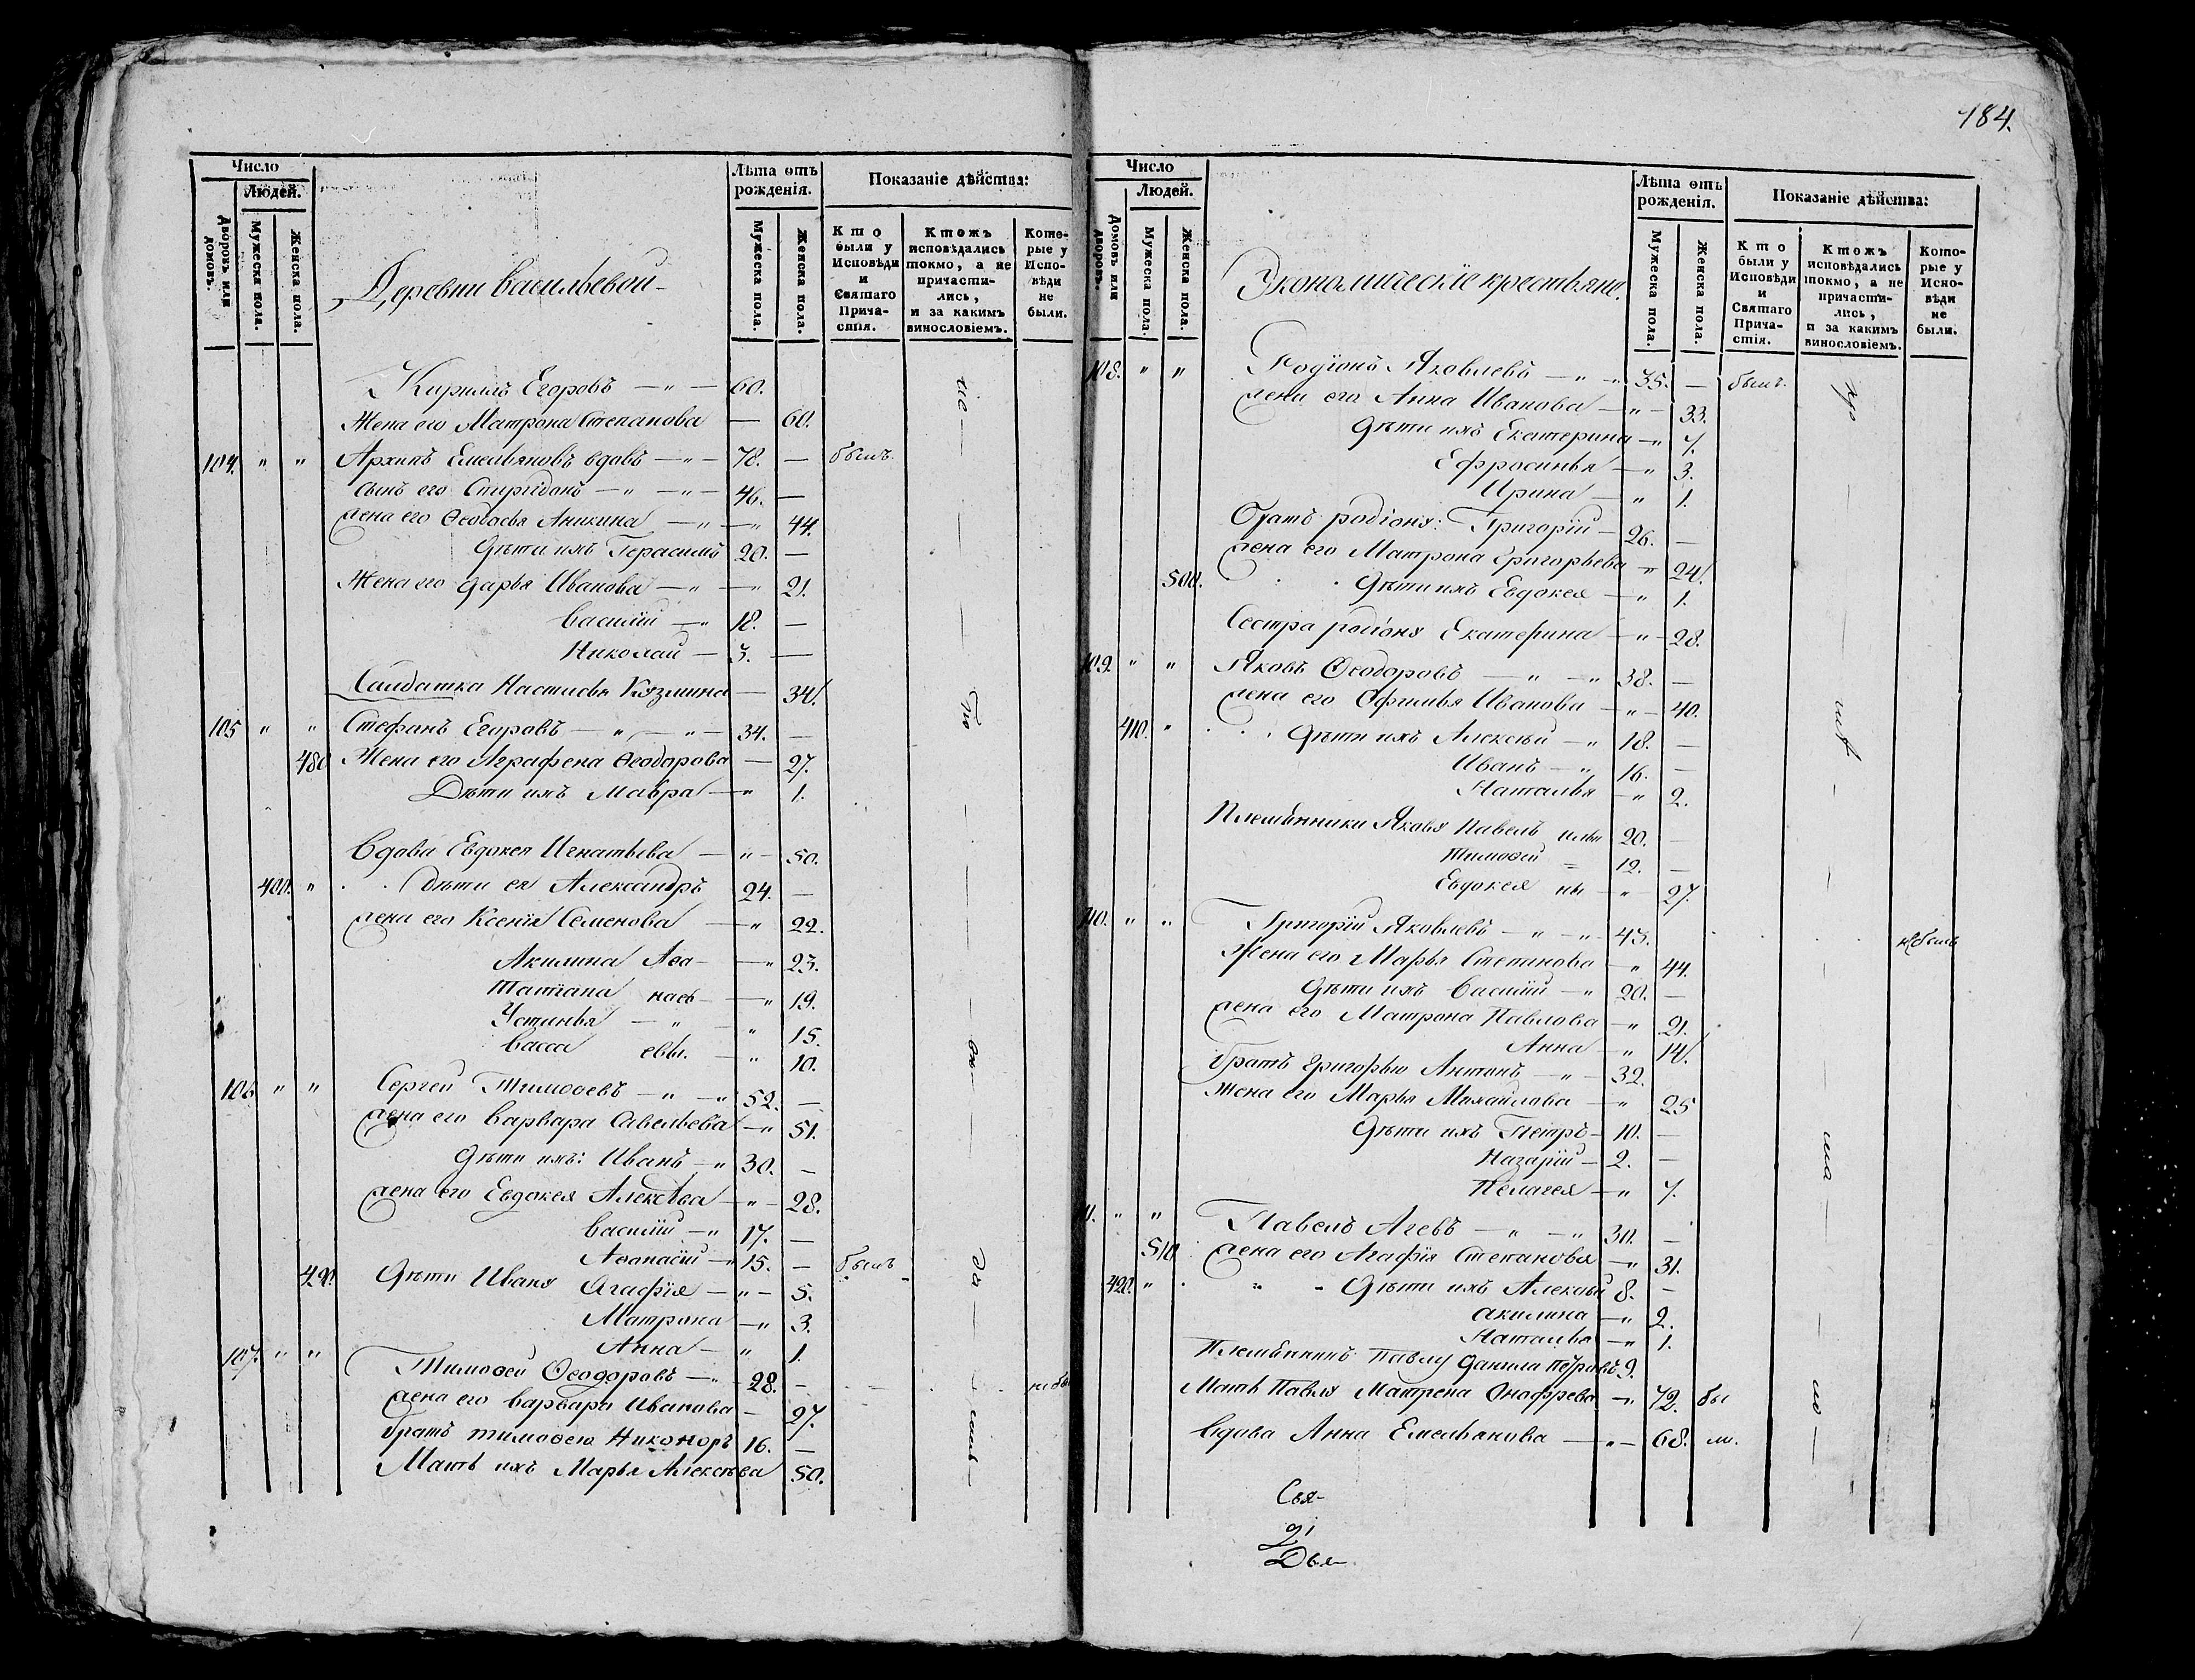 184.
Число
Людей.
Дворовъ или домовъ.
Мужеска пола.
Женска пола.
Лѣта отъ рожденія.
Мужеска пола.
Женска пола.
Показаніе дѣйства:
Кто были у Исповѣди и Святаго Причастія.
Ктожъ исповѣдались токмо, а не причастились, и за какимъ винословіемъ.
Которые у Исповѣди не были.
Деревни васильевой
Кириллъ Егоровъ — " — 60.
Жена его Матрона Степанова — 60.
104. " " Архипъ Емельяновъ вдовъ — " — 78. — былъ
сынъ его Спиридонъ — " — " — 46. —
жена его Ѳеодосья Аникина — " — " 44.
Дѣти ихъ Герасимъ 20. —
Жена его дарья Иванова — " — " 21.
василій — " 18. —
Николай — 3. —
Салдатка Настасья Козмина — 34.
105 " " Стефанъ Егоровъ — " — " — 34. —
480 Жена его Аграфена Ѳеодорова — 27.
Дѣти ихъ Мавра — " 1.
Вдова Евдокея Игнатьева — " — 50.
400. " дѣти ея Александръ 24. —
жена его Ксенія Семенова — " 22.
Акилина Аѳа- — " 23.
Татіана нась- — " 19.
Устинья — " — " 15.
васса евы. — " 10.
106 " " Сергей Тимоѳеевъ — " — " 52. —
жена его варвара Савельева — " 51.
Дѣти ихъ: Иванъ — " 30. —
жена его Евдокея Алексѣева — " — 28.
василій — " 17. —
Аѳанасій — " 15. — былъ
490. Дѣти Ивана Агафія — " — 5.
Матрона — " 3.
Анна — " 1.
107. " " Тимоѳей Ѳеодоровъ — " 28. — не бы
жена его варвара Иванова — 27.
братъ тимоѳею Никоноръ 16. —
Мать ихъ Марья Алексѣева 50.
Число
Людей.
Домовъ или дворовъ.
Мужеска пола.
Женска пола.
Лѣта отъ рожденія.
Мужеска пола.
Женска пола.
Показаніе дѣйства:
Кто были у Исповѣди и Святаго Причастія.
Ктожъ исповѣдались токмо, а не причастились, и за какимъ винословіемъ.
Которые у Исповѣди не были.
Экономическіе крестьяне.
108. " " Родіонъ Яковлевъ — " — " 35. — былъ
жена его Анна Иванова — " — 33.
Дѣти ихъ Екатерина — " 7.
Ефросинья — " 3.
Ирина — " 1.
братъ родіона: Григорій — 26. —
жена его Матрона Григорьева — " 24.
500. Дѣти ихъ Евдокея — " 1.
Сестра родіона Екатерина — " — 28.
109. " " Яковъ Ѳеодоровъ — " — " 38. —
жена его Офимья Иванова — " — 40.
410. " Дѣти ихъ Алексѣй — " 18. —
Иванъ — " 16. —
Наталья — " 2.
Племянники Якова Павелъ ильи 20. —
Тимоѳей = 12. —
Евдокея ны — " 27.
110. " " Григорій Яковлевъ — " — " 45. не былъ
Жена его Марья Степанова — " 44.
Дѣти ихъ василій — " 20. —
жена его Матрона Павлова — " 21.
Анна — " 14.
братъ григорью Антонъ — " — 32.
жена его Марья Михайлова — " 25
Дѣти ихъ Петръ — 10. —
Назарій — 2. —
Пелагея — " 7.
" " Павелъ Агевъ — " — " 30. —
510 жена его Агафія Степанова — " 31.
420. " Дѣти ихъ Алексѣй 8. —
акилина — " 2.
Наталья — " 1.
Племянникъ Павлу данила петровъ 9.
Мать Павла Матрена Онофрева — " 72. бы
вдова Анна Емельянова — " — 68. ли.
Свя-
Дья-